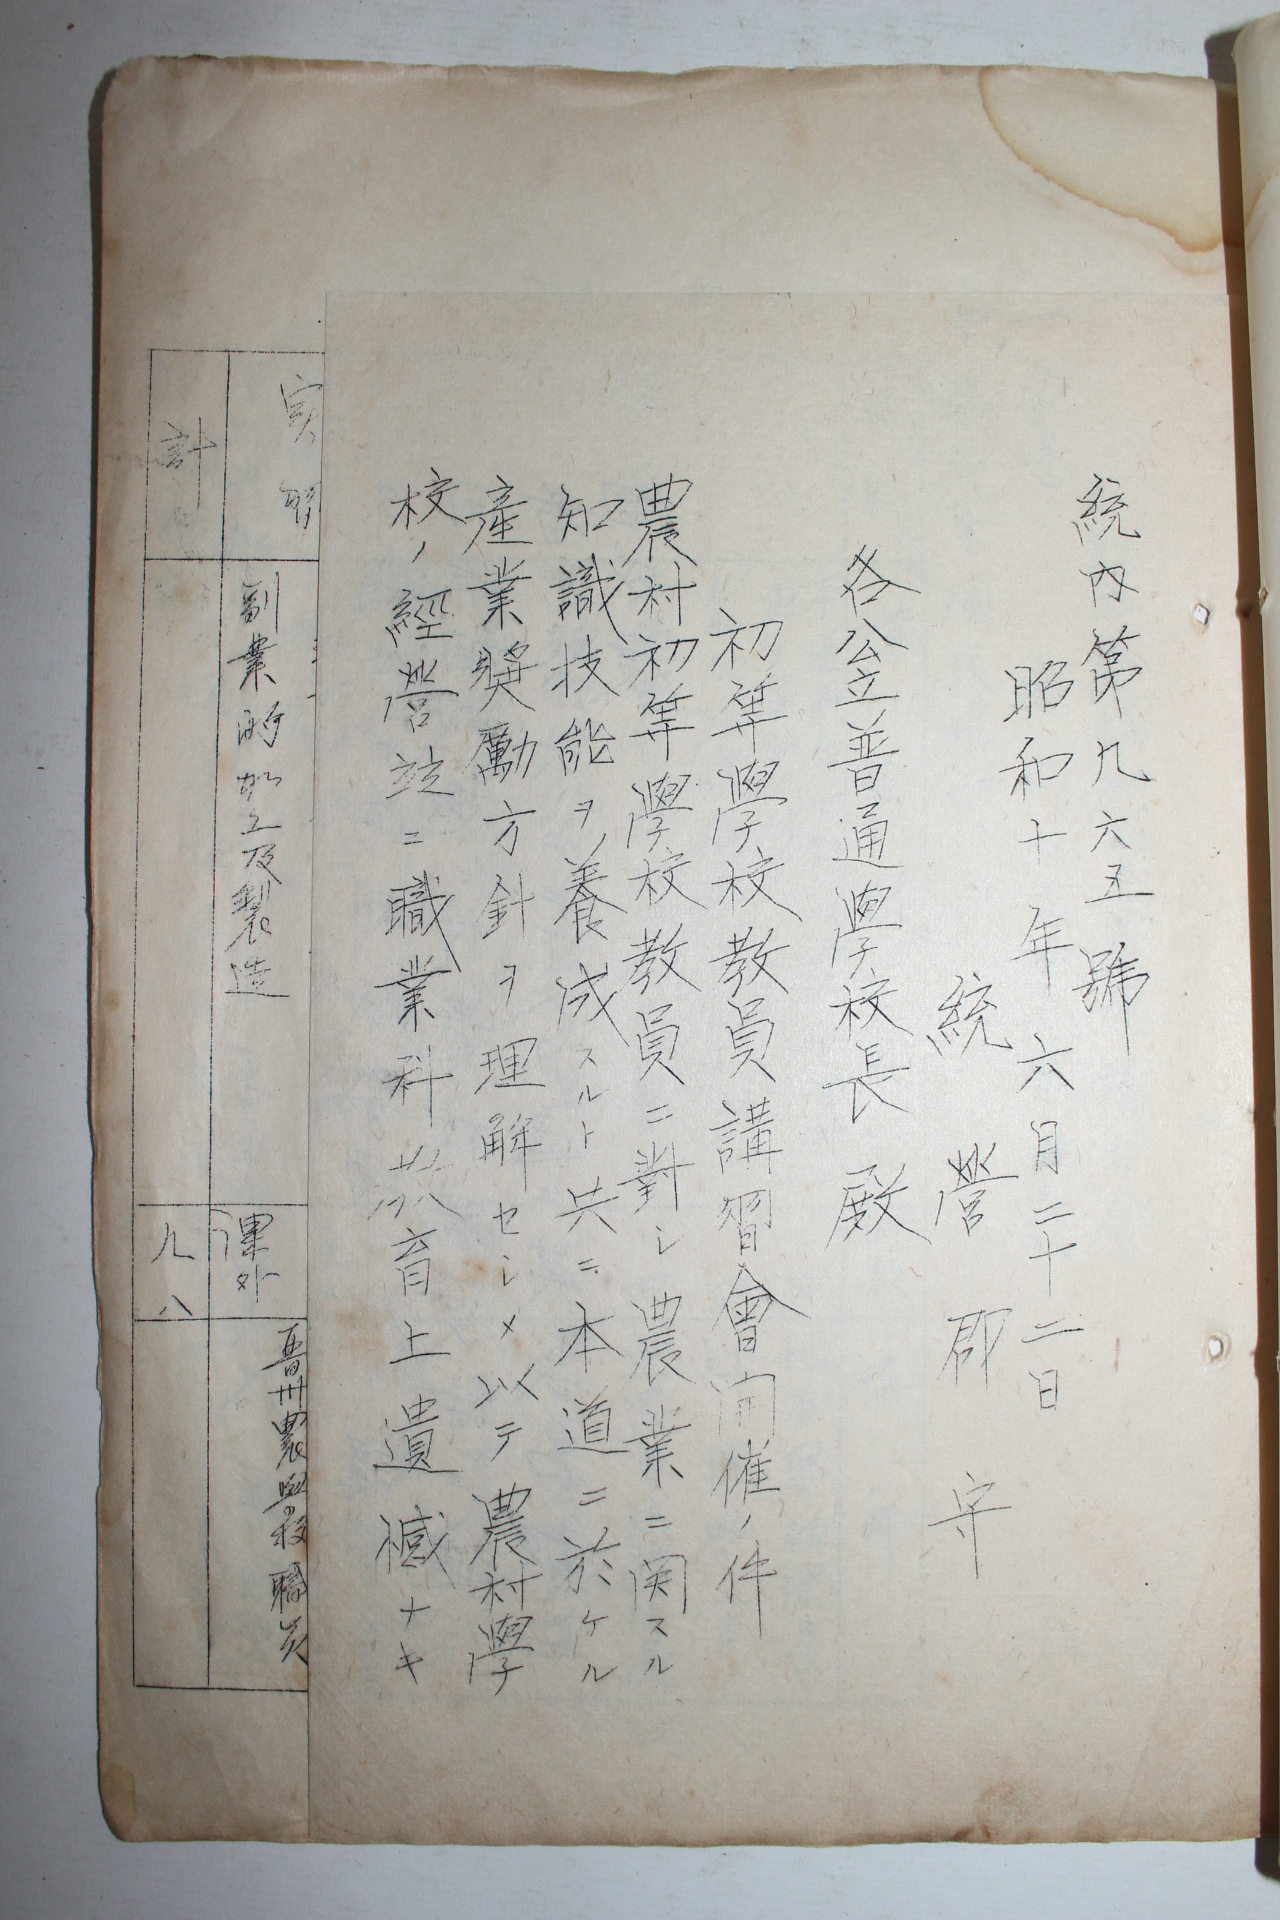 統内第九六五號
昭和十年六月二十二日
統營郡守
各公立普通學校長殿
初等學校教員講習會開催ノ件
農村初等學校教員ニ對シ農業ニ関スル
知識技能ヲ養成スルト共ニ本道ニ於ケル
產業奬勵方針ヲ理解セシメ以テ農村學
校ノ經營竝ニ職業科教育上遺憾ナキ
実習
副業的加工及製造
課外
晋州農學校職員
計
九八